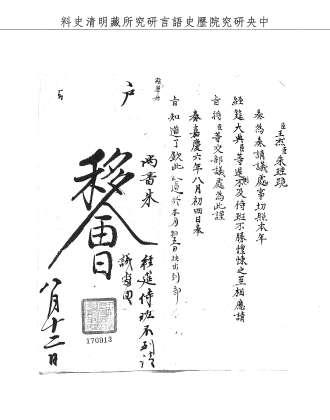 中央研究院歷史語言研究所藏明清史料
臣王杰臣朱珪跪
奏為奏請議處事切照本年
經筵大典臣等遲不及侍班不勝惶悚之至相應請
旨將臣等交部議處為此謹
奏嘉慶六年八月初四日奉
旨知道了欽此於本月日抄出到部
經筵侍班不到請
議處因
兩書朱
戶
移會
八月十二日
170913